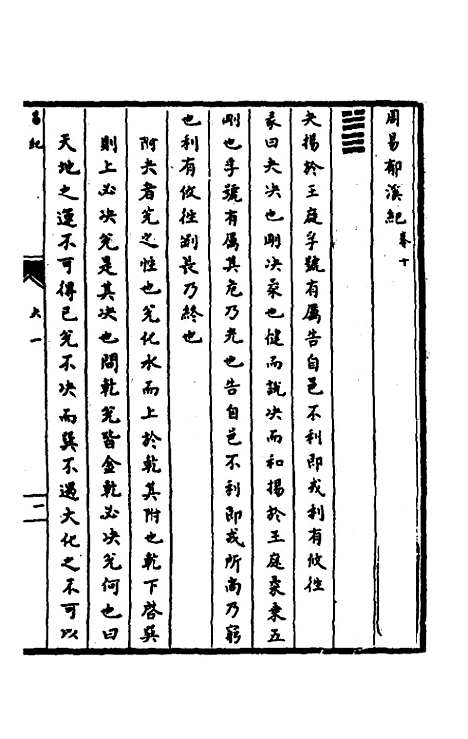 周易郁溪紀 卷十
夬揚於王庭孚號有厲告自邑不利即戎利有攸往
彖曰夬決也剛決柔也健而說決而和揚於王庭柔乘五
剛也孚號有厲其危乃光也告自邑不利即戎所尚乃窮
也利有攸往剛長乃終也
附夬者兊之性也兊化水而上於乾其附也乾下啓巽
則上必决兊是其决也問乾兊皆金乾必决兊何也曰
天地之運不可得已兊不决而巽不遇大化之不可以
易紀
夬 一